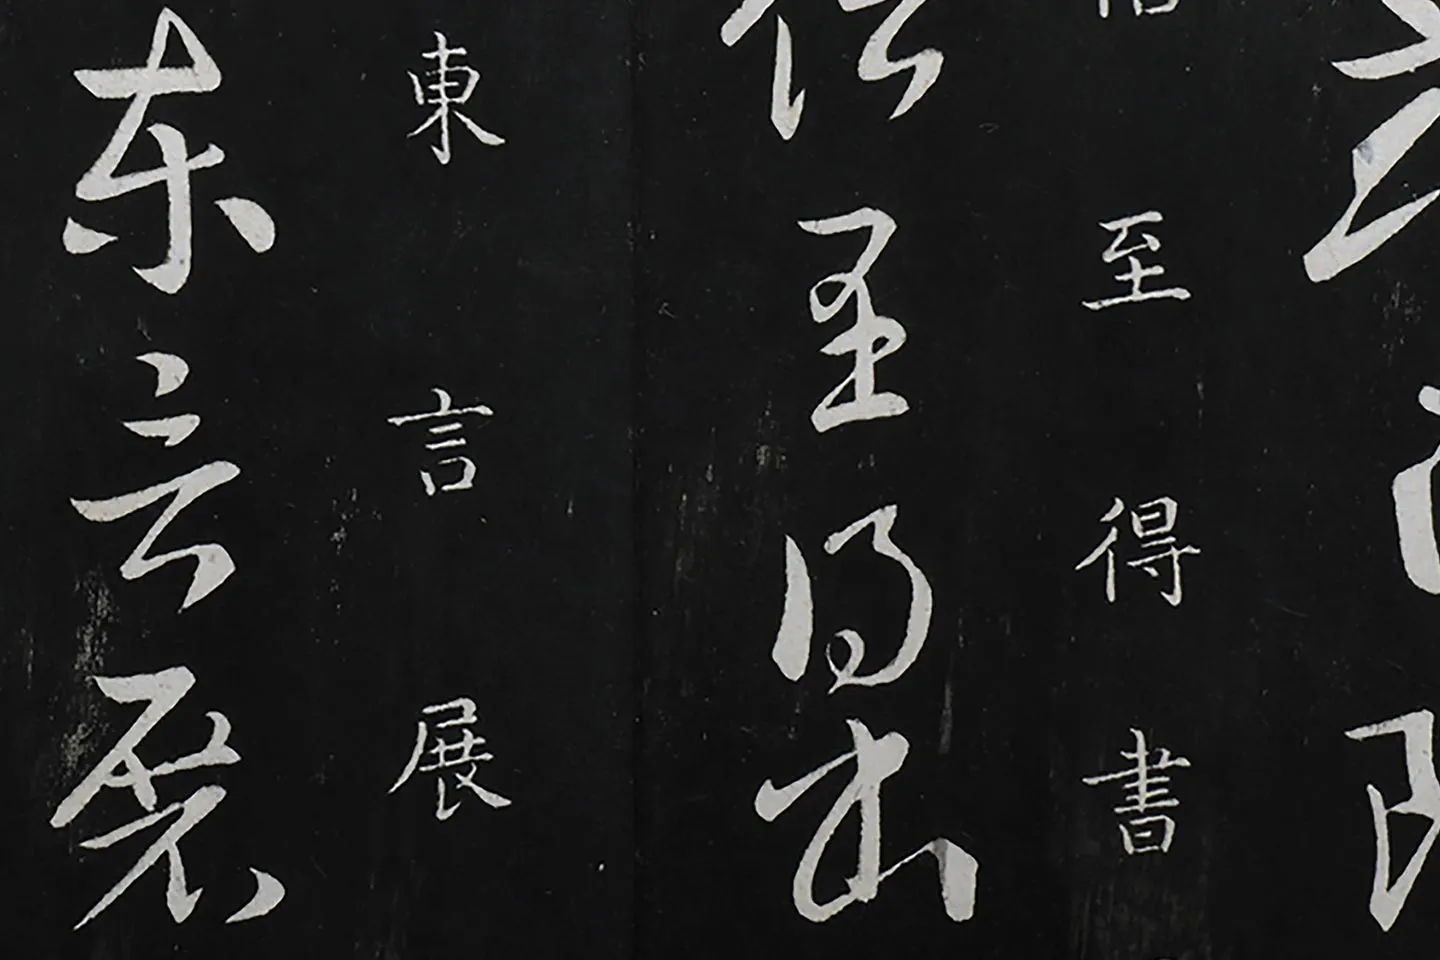 至得書
至得書
東言展
東言展